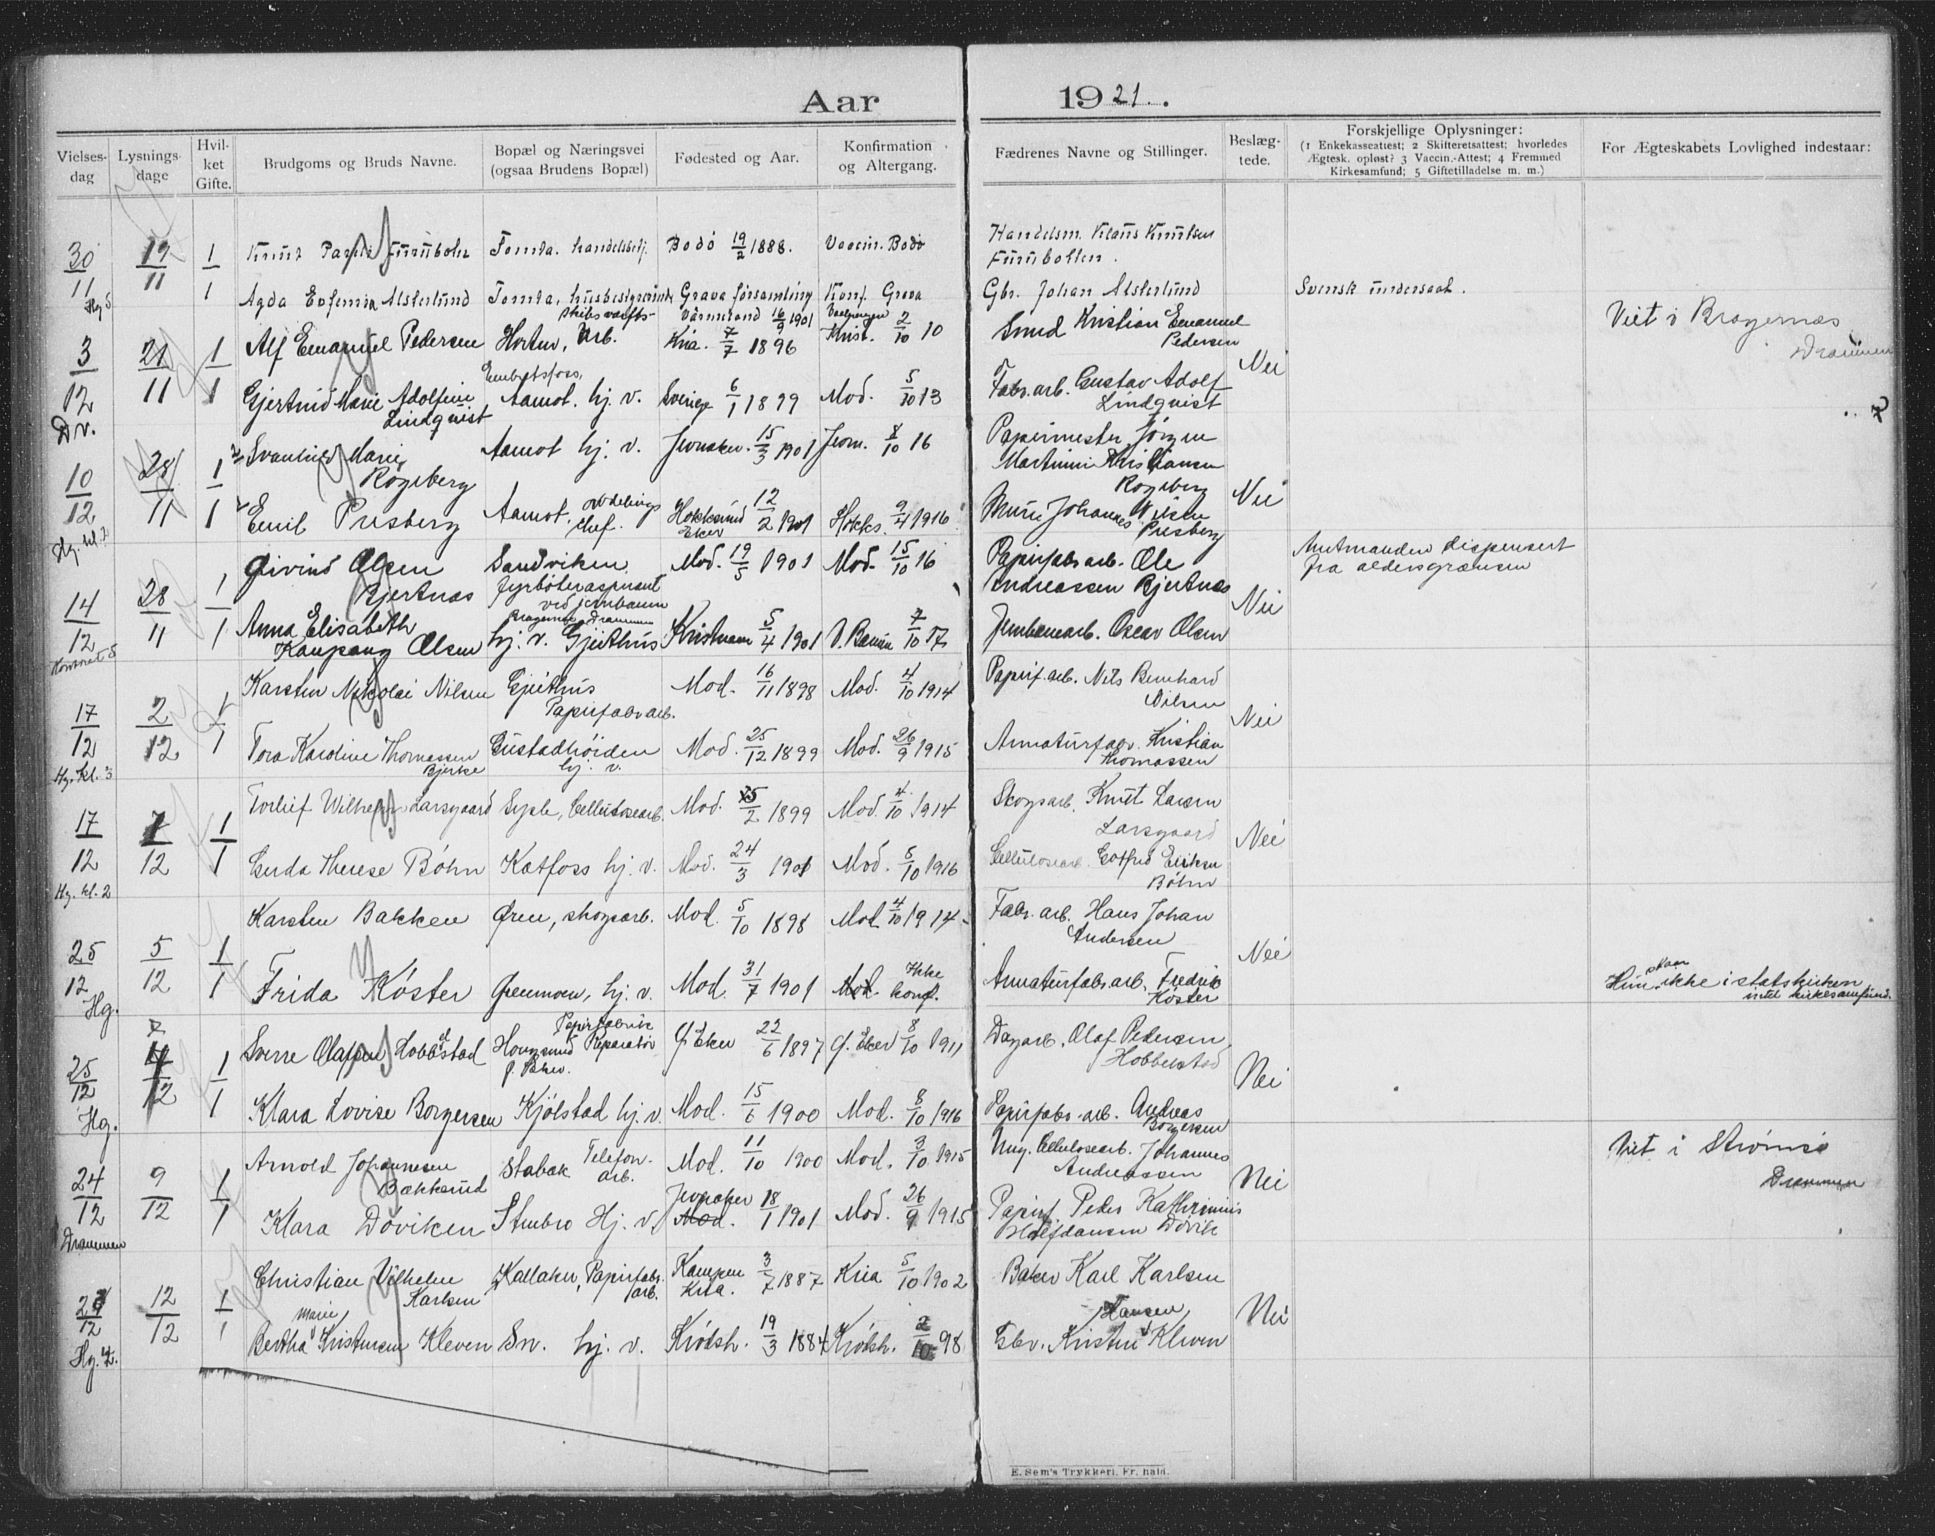 Aar 1921.
Vielses-dag | Lysnings-dage | Hvil-ket Gifte. | Brudgoms og Bruds Navne. | Bopæl og Næringsvei (ogsaa Brudens Bopæl) | Fødested og Aar. | Konfirmation og Altergang. | Fædrenes Navne og Stillinger. | Beslæg-tede. | Forskjellige Oplysninger: (1 Enkekasseattest; 2 Skifteretsattest; hvorledes Ægtesk. opløst? 3 Vaccin.-Attest; 4 Fremmed Kirkesamfund; 5 Giftetilladelse m. m.) | For Ægteskabets Lovlighed indestaar:
30/11 | 19/11 | 1 | Knut Furuboten | Tomta. handelsbetj. | Bodö 19/2 1888. | Vaccin. Bodö | Handelsm. Klaus Knutsen Furubotten.
1 | Agda Eufemia Alsterlund | Tomta, husbestyrerinde | Grava församling Värmland 16/9 1901 | Konf. Grava | Gbr. Johan Alsterlund | Svensk undersaat.
3/12 Dr. | 21/11 | 1 | Alf Emanuel Pedersen | Horten, skibsværfts-arb. | Kria. 7/7 1896 | Krist. 2/10 10 | Smed Kristian Emanuel Pedersen | Nei | Viet i Bragernæs Drammen
1 | Gjertrud Marie Adolfine Lindqvist | Embretsfoss, Aamot. hj. v. | Sverige 6/1 1899 | Mod. 5/10 13 | Fabr.arb. Gustav Adolf Lindqvist
10/12 Hg. kl. 7 | 28/11 | 1 | Svanhild Marie Rogsberg | Aamot hj. v. | Jevnaker. 15/3 1901 | Jevn. 8/10 16 | Papirmester Jörgen Martinius Kristiansen Rogsberg | Nei
1 | Emil Presberg | Aamot, avdelings chef. | Hokksund Eker 12/2 1901 | Hokks. 9/4 1916 | Murer Johannes Nilsen Presberg
14/12 | 28/11 | 1 | Øivind Olsen Bjertnæs | Sandviken. fyrböteraspirant ved jernbanen | Mod. 19/5 1901 | Mod. 15/10 16 | Papirfabr.arb. Ole Andreassen Bjertnæs | Nei | Amtmanden dispensert fra aldersgrænsen
1 | Anna Elisabeth Kaupang Olsen | hj. v. Gjeithus | Kristiania 5/4 1901 | 7/10 17 | Jernbanearb. Oscar Olsen
17/12 Hg. kl. 3 | 2/12 | 1 | Karsten Nikolai Nilsen | Gjeithus Papirfabr.arb. | Mod. 16/11 1898 | Mod. 4/10 1914 | Papirf.arb. Nils Bernhard Nilsen | Nei
1 | Tora Karoline Thomassen Bjerke | Gustadhöiden hj. v. | Mod. 25/12 1899 | Mod. 26/9 1915 | Armaturfabr. Kristian Thomassen
17/12 Hg. kl. 2 | 7/12 | 1 | Torleif Wilhelm Larsgaard | Sysle, Cellulosearb. | Mod. 15/2 1899 | Mod. 4/10 1914 | Skogsarb. Knut Larsen Larsgaard | Nei
1 | Gerda Therese Bøhn | Katfoss hj. v. | Mod. 24/3 1901 | Mod. 5/10 1916 | Cellulosearb. Gotfred Eriksen Bøhn
25/12 Hg. | 5/12 | 1 | Karsten Bakken | Øren, skogsarb. | Mod. 5/10 1898 | Mod 4/10 1914 | Fabr.arb. Hans Johan Andersen | Nei
1 | Frida Köster | Ørenmoen, hj. v. | Mod. 31/7 1901 | Mod. Ikke konf. | Armaturfabr.arb. Fredrik Köster | Hun staar ikke i statskirken intet kirkesamfund.
25/12 Hg. | 4/12 | 1 | Sverre Olafsen Hobbelstad | Hougsund Ø. Eker. Papirfabrik Reparatör | Ø Eker 22/6 1897 | Ø. Eker 8/10 1911 | Dagarb. Olaf Pedersen Hobbelstad | Nei
1 | Klara Lovise Borgersen | Kjölstad hj. v. | Mod. 15/6 1900 | Mod. 8/10 1916 | Papirfabr.arb. Andreas Borgersen
24/12 Drammen | 9/12 | 1 | Arnold Johannesen Bækkerud | Stabæk Telefon-arb. | Mod. 11/10 1900 | Mod. 3/10 1915 | Ung. Cellulosearb. Johannes Andreassen | Nei | Viet i Strömsö Drammen
1 | Klara Döviken | Stenbro Hj. v. | Jevnaker Mod. 18/1 1901 | Mod. 26/9 1915 | Papirf. Peder Kathrinius Halfdansen Dövik
12/12 | 1 | Christian Vilhelm Karlsen | Kallaker, Papirfabr.arb. | Kampen Kria. 3/7 1887 | Kria 5/10 1902 | Baker Karl Karlsen | Nei
1 | Bertha Marie Kristensen Kleven | Sn. hj. v. | Krödsh. 19/3 1884 | Krödsh. 2/10 98 | Gbr. Kristen Hansen Kleven
E. Sem's Trykkeri, Fr. hald.